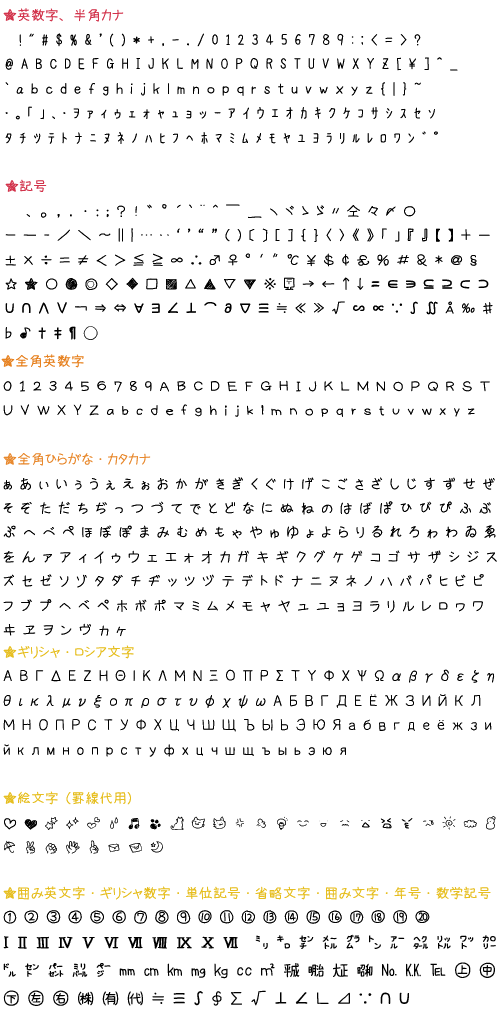 ★英数字、半角カナ
!"#$%&'()*+,-./0123456789:;<=>?
@ABCDEFGHIJKLMNOPQRSTUVWXYZ[¥]^_
`abcdefghijklmnopqrstuvwxyz{|}~
･｡｢｣､･ｦｧｨｩｪｫｬｭｮｯｰｱｲｳｴｵｶｷｸｹｺｻｼｽｾｿ
ﾀﾁﾂﾃﾄﾅﾆﾇﾈﾉﾊﾋﾌﾍﾎﾏﾐﾑﾒﾓﾔﾕﾖﾗﾘﾙﾚﾛﾜﾝﾞﾟ
★記号
、。，．・：；？！゛゜´｀¨＾￣＿ヽヾゝゞ〃仝々〆〇
ー―‐／＼～∥｜…‥‘’“”（）〔〕［］｛｝〈〉《》「」『』【】＋－
±×÷＝≠＜＞≦≧∞∴♂♀°′″℃￥＄￠￡％＃＆＊＠§
☆★○●◎◇◆□■△▲▽▼※〒→←↑↓〓∈∋⊆⊇⊂⊃
∪∩∧∨￢⇒⇔∀∃∠⊥⌒∂∇≡≒≪≫√∽∝∵∫∬Å‰♯
♭♪†‡¶◯
★全角英数字
０１２３４５６７８９ＡＢＣＤＥＦＧＨＩＪＫＬＭＮＯＰＱＲＳＴ
ＵＶＷＸＹＺａｂｃｄｅｆｇｈｉｊｋｌｍｎｏｐｑｒｓｔｕｖｗｘｙｚ
★全角ひらがな・カタカナ
ぁあぃいぅうぇえぉおかがきぎくぐけげこごさざしじすずせぜ
そぞただちぢっつづてでとどなにぬねのはばぱひびぴふぶ
ぷへべぺほぼぽまみむめもゃやゅゆょよらりるれろゎわゐゑ
をんァアィイゥウェエォオカガキギクグケゲコゴサザシジス
ズセゼソゾタダチヂッツヅテデトドナニヌネノハバパヒビピ
フブプヘベペホボポマミムメモャヤュユョヨラリルレロヮワ
ヰヱヲンヴヵヶ
★ギリシャ・ロシア文字
ΑΒΓΔΕΖΗΘΙΚΛΜΝΞΟΠΡΣΤΥΦΧΨΩαβγδεζη
θικλμνξοπρστυφχψωАБВГДЕЁЖЗИЙКЛ
МНОПРСТУФХЦЧШЩЪЫЬЭЮЯабвгдеёжзи
йклмнопрстуфхцчшщъыьэюя
★絵文字（罫線代用）
★囲み英文字・ギリシャ数字・単位記号・省略文字・囲み文字・年号・数学記号
①②③④⑤⑥⑦⑧⑨⑩⑪⑫⑬⑭⑮⑯⑰⑱⑲⑳
ⅠⅡⅢⅣⅤⅥⅦⅧⅨⅩⅦ ㍉㌔㌢㍍㌘㌧㌃㌶㍑㍗㌍
㌦㌣㌫㍊㌻㎜㎝㎞㎎㎏㏄㎡㍻㍾㍽㍼№㏍℡㊤㊥
㊦㊧㊨㈱㈲㈹≒≡∫∮∑√⊥∠∟⊿∵∩∪